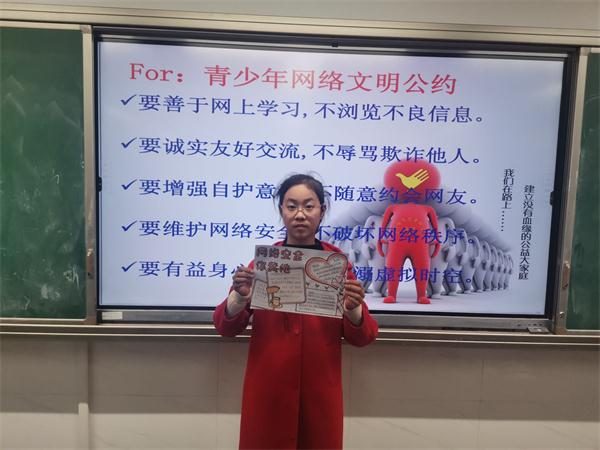 For：青少年网络文明公约
✓要善于网上学习,不浏览不良信息。
✓要诚实友好交流,不辱骂欺诈他人。
✓要增强自护意 不随意约会网友。
✓要维护网络安全 不破坏网络秩序。
✓要有益身心 溺虚拟时空。
建立没有血缘的公益大家庭
我们在路上……
网络安全
你我他